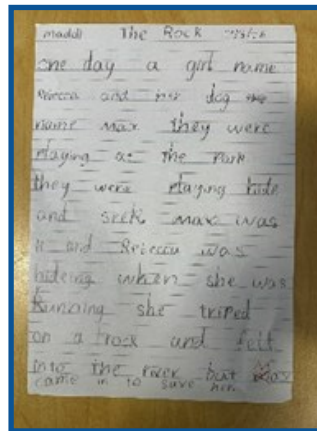 maddi The Rock
one day a girl name
Rebecca and her dog
name max they were
Playing at the Park
they were Playing hide
and seek max was
it and Rebecca was
hideing when she was
Running she triped
on a rock and fell
into the river but Max
came in to save her